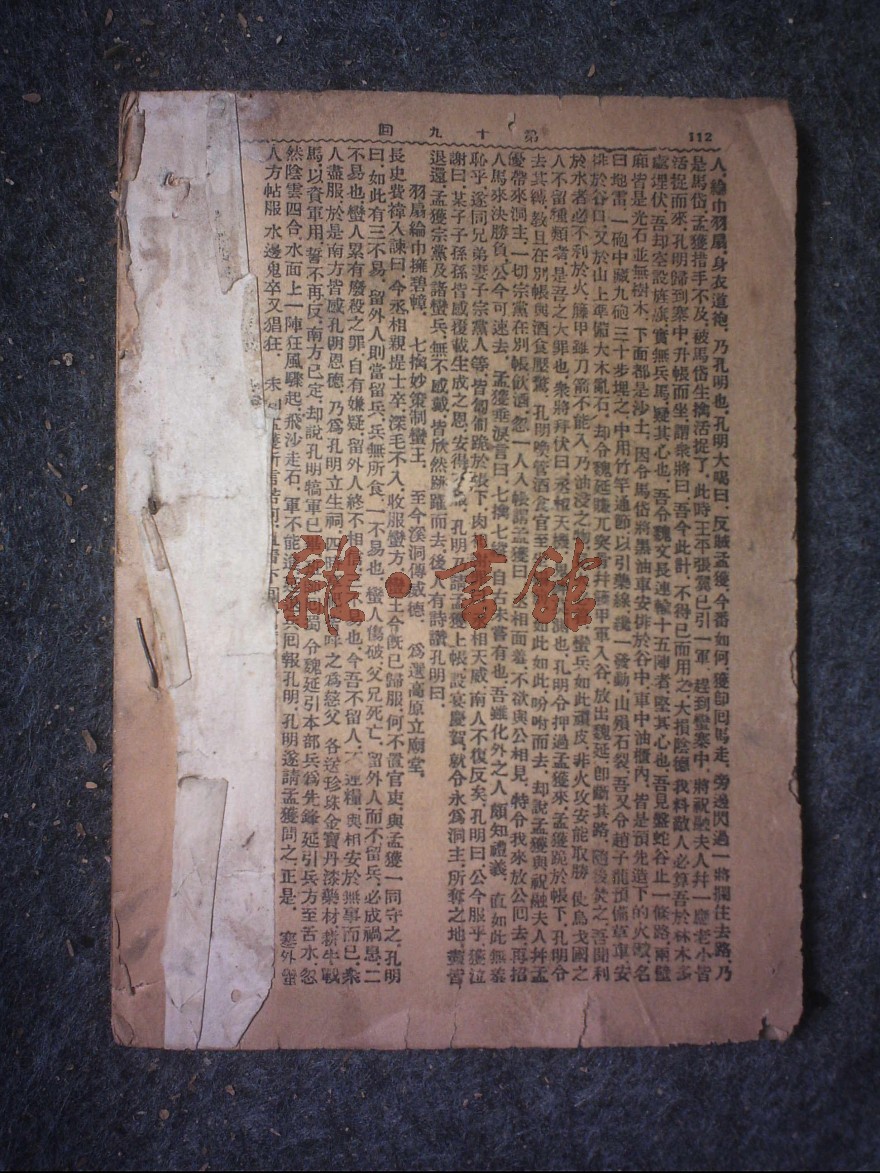 112
第十九回
人、綸巾羽扇、身衣道袍、乃孔明也、孔明大喝曰、反賊孟獲、今番如何、獲卽囘馬走、旁邊閃過一將、攔住去路、乃
是馬岱、孟獲措手不及、被馬岱生擒活捉了、此時王平張翼已引一軍、趕到蠻寨中、將祝融夫人幷一應老小皆
活捉而來、孔明歸到寨中、升帳而坐、謂衆將曰、吾今此計、不得已而用之、大損陰德、我料敵人必算吾於林木多
處埋伏、吾却空設旌旗、實無兵馬、疑其心也、吾令魏文長連輸十五陣者、堅其心也、吾見盤蛇谷止一條路、兩壁
廂皆是光石、並無樹木、下面都是沙土、因令馬岱將黑油車安排於谷中、車中油櫃內、皆是預先造下的火砲、名
曰地雷、一砲中藏九砲、三十步埋之、中用竹竿通節、以引藥線、纔一發動、山損石裂、吾又令趙子龍預備草車、安
排於谷口、又於山上準備大木亂石、却令魏延賺兀突骨幷籐甲軍入谷、放出魏延、卽斷其路、隨後焚之、吾聞利
於水者必不利於火、籐甲雖刀箭不能入、乃油浸之 蠻兵如此頑皮、非火攻安能取勝、使烏戈國之
人不留種類者、是吾之大罪也、衆將拜伏曰、丞相天機 測也、孔明令押過孟獲來、孟獲跪於帳下、孔明令
去其縛、敎且在別帳與酒食壓驚、孔明喚管酒食官至 此如此、吩咐而去、却說孟獲與祝融夫人幷孟
優帶來洞主、一切宗黨在別帳飲酒、忽一人入帳謂孟獲曰、丞相面羞、不欲與公相見、特令我來放公囘去、再招
人馬來決勝負、公今可速去、孟獲垂淚言曰、七擒七 自古未嘗有也、吾雖化外之人、頗知禮義、直如此無羞
恥乎、遂同兄弟妻子宗黨人等、皆匍匐跪於帳下、肉袒 相天威、南人不復反矣、孔明曰、公今服乎、獲泣
謝曰、某子子孫孫皆感覆載生成之恩、安得不 孔明 請孟獲上帳、設宴慶賀、就令永爲洞主、所奪之地、盡皆
退還、孟獲宗黨及諸蠻兵、無不感戴、皆欣然跳躍而去、後 有詩讚孔明曰、
羽扇綸巾擁碧幢、七擒妙策制蠻王、至今溪洞傳威德、爲選高原立廟堂、
長史費禕入諫曰、今丞相親提士卒、深毛不入、收服蠻方、 今旣已歸服、何不置官吏、與孟獲一同守之、孔明
曰、如此有三不易、留外人則當留兵、兵無所食、一不易也、蠻人傷破、父兄死亡、留外人而不留兵、必成禍患、二
不易也、蠻人累有廢殺之罪、自有嫌疑、留外人終不相 也、今吾不留人、不運糧、與相安於無事而已、衆
人盡服、於是南方皆感孔明恩德、乃爲孔明立生祠、四時 呼之爲慈父、各送珍珠金寶丹漆藥材耕牛戰
馬、以資軍用、誓不再反、南方已定、却說孔明犒軍已 蜀、令魏延引本部兵爲先鋒、延引兵方至舌水、忽
然陰雲四合、水面上一陣狂風驟起、飛沙走石、軍不能進 囘報孔明、孔明遂請孟獲問之、正是、塞外蠻
人方帖服、水邊鬼卒又猖狂、未
雜·書館